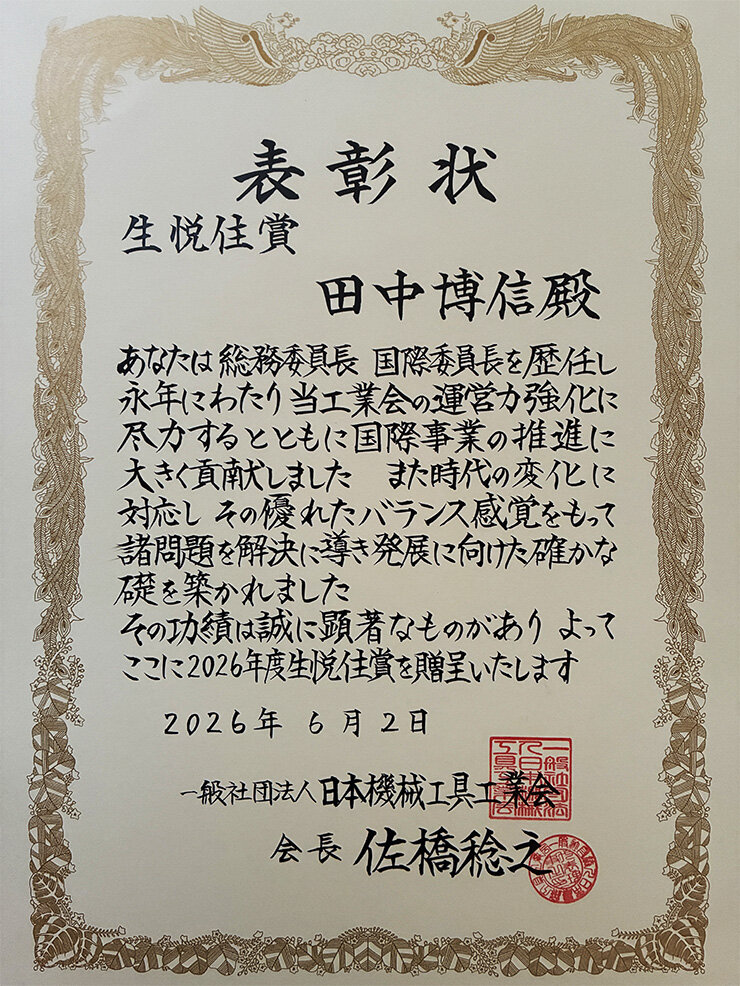 表彰状
生悦住賞
田中博信殿
あなたは総務委員長 国際委員長を歴任し
永年にわたり当工業会の運営力強化に
尽力するとともに国際事業の推進に
大きく貢献しました また時代の変化に
対応し その優れたバランス感覚をもって
諸問題を解決に導き発展に向けた確かな
礎を築かれました
その功績は誠に顕著なものがあり よって
ここに2026年度生悦住賞を贈呈いたします
2026年 6月2日
一般社団法人日本機械工具工業会
会長 佐橋稔之